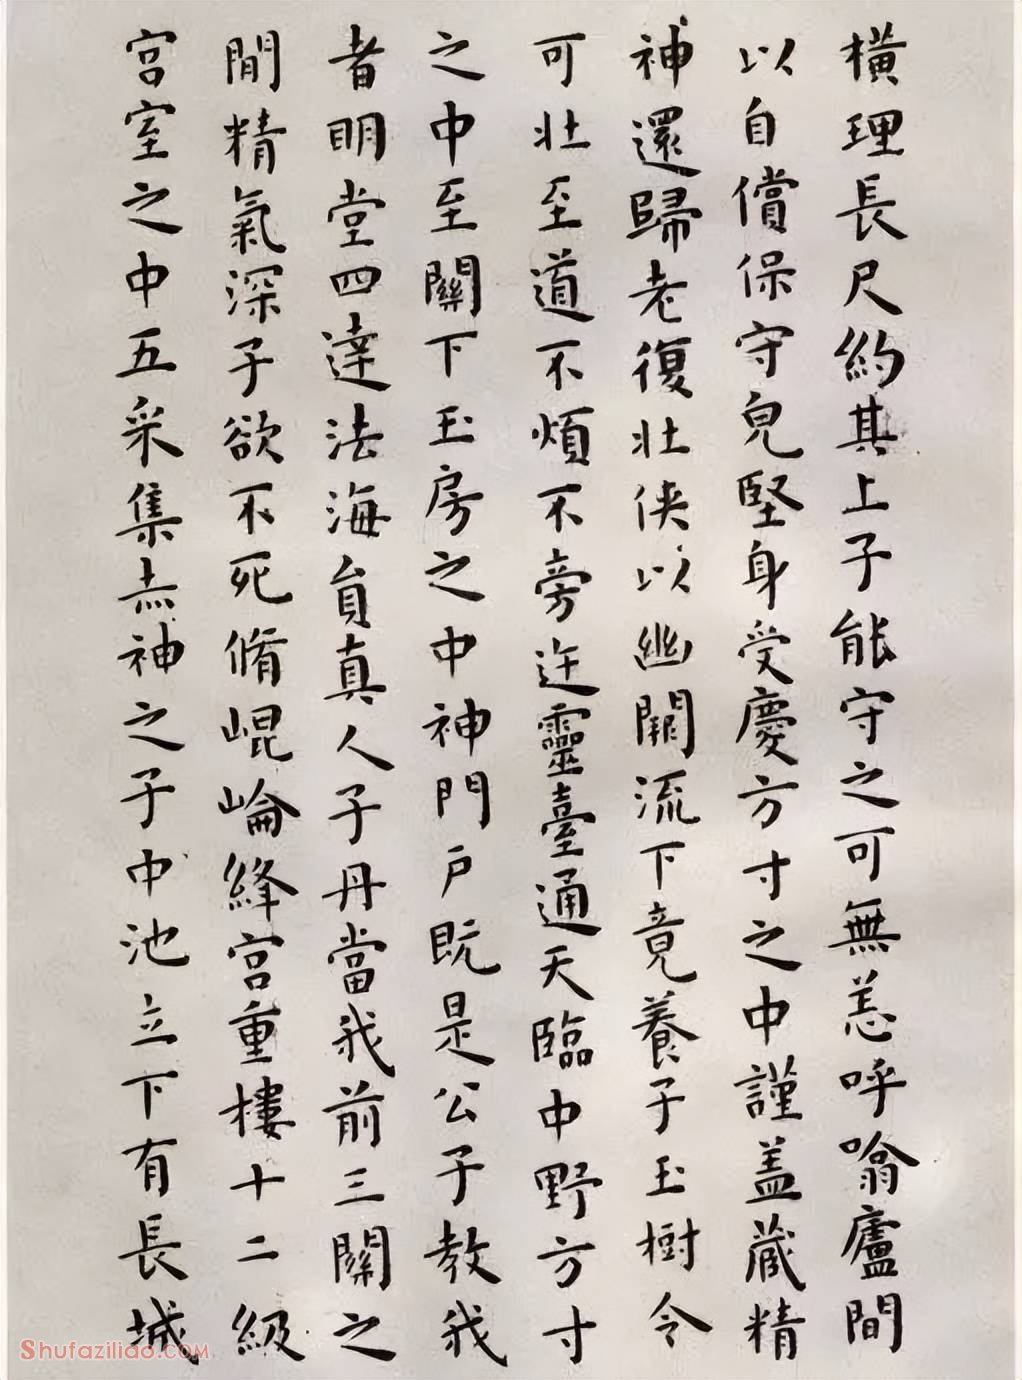 橫理長尺約其上子能守之可無恙呼噏廬間
以自償保守皃堅身受慶方寸之中謹盖藏精
神還歸老復壯俠以幽闕流下竟養子玉樹令
可壯至道不煩不旁迕靈臺通天臨中野方寸
之中至關下玉房之中神門戶既是公子教我
者明堂四達法海員真人子丹當我前三關之
間精氣深子欲不死脩崐崘絳宮重樓十二級
宮室之中五采集赤神之子中池立下有長城
SHUFAZILIAO.COM